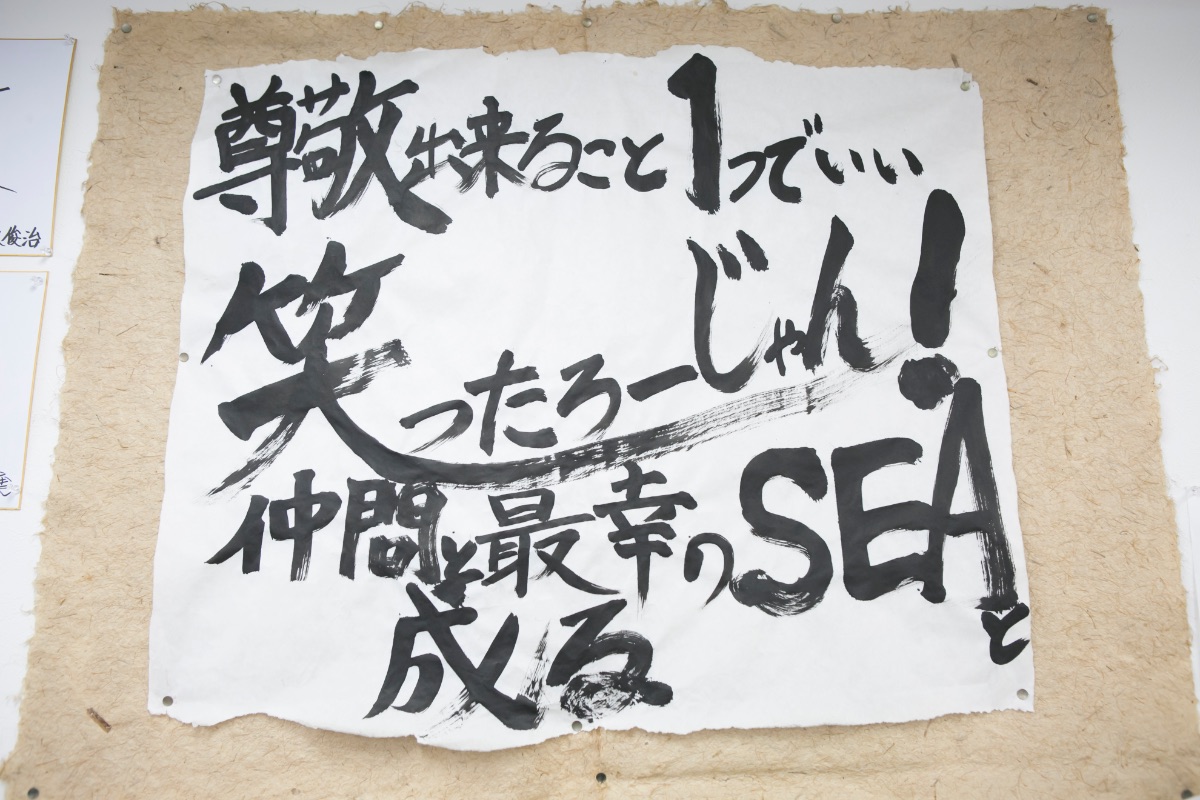 尊敬出来ること1つでいい
笑ったろーじゃん!
仲間と最幸のSEAと
成る
俊治